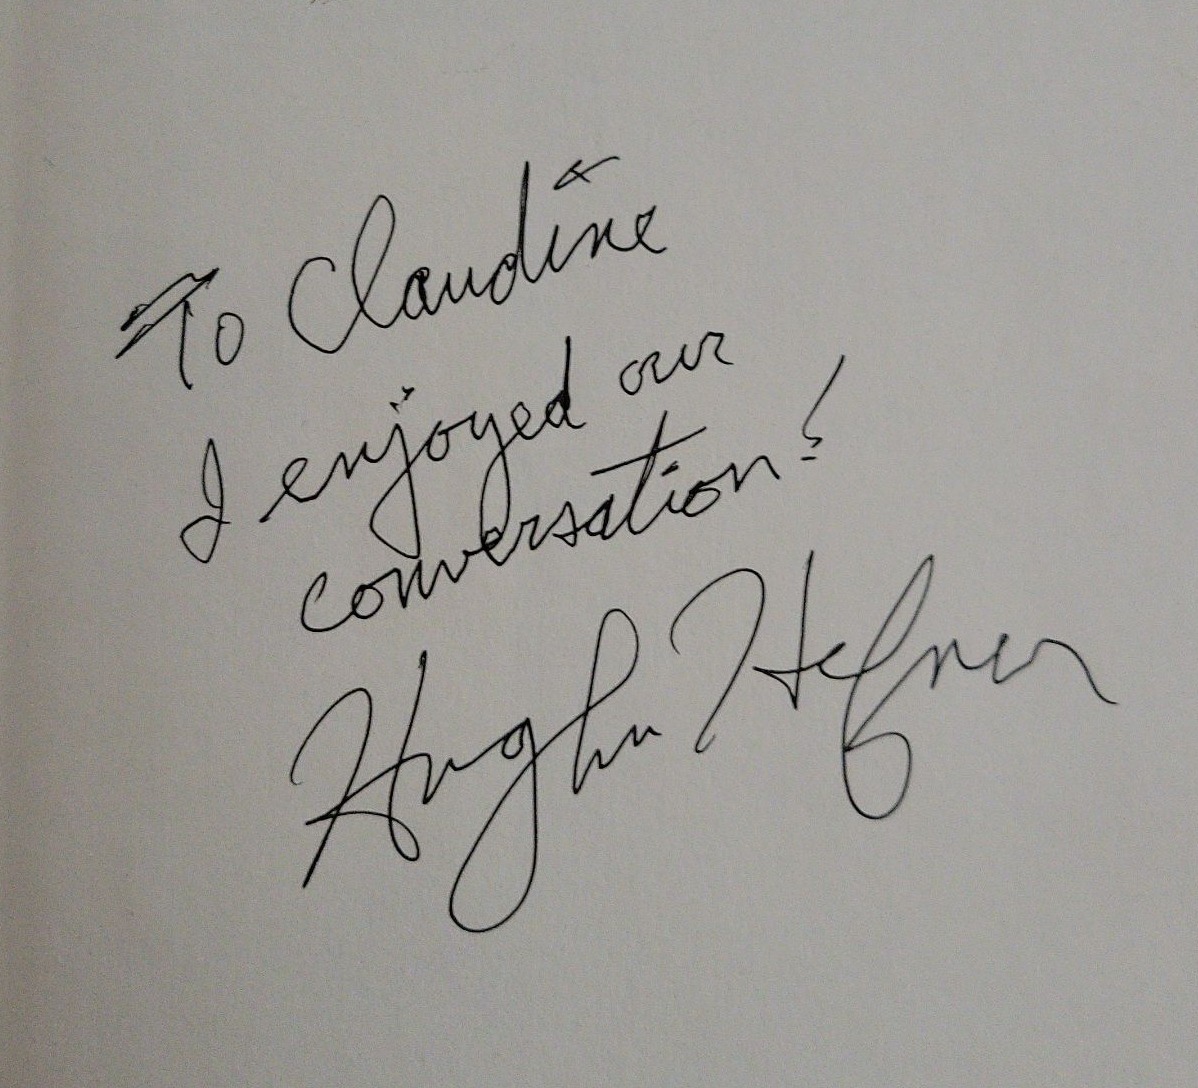 To Claudine
I enjoyed our
conversation!
Hugh Hefner